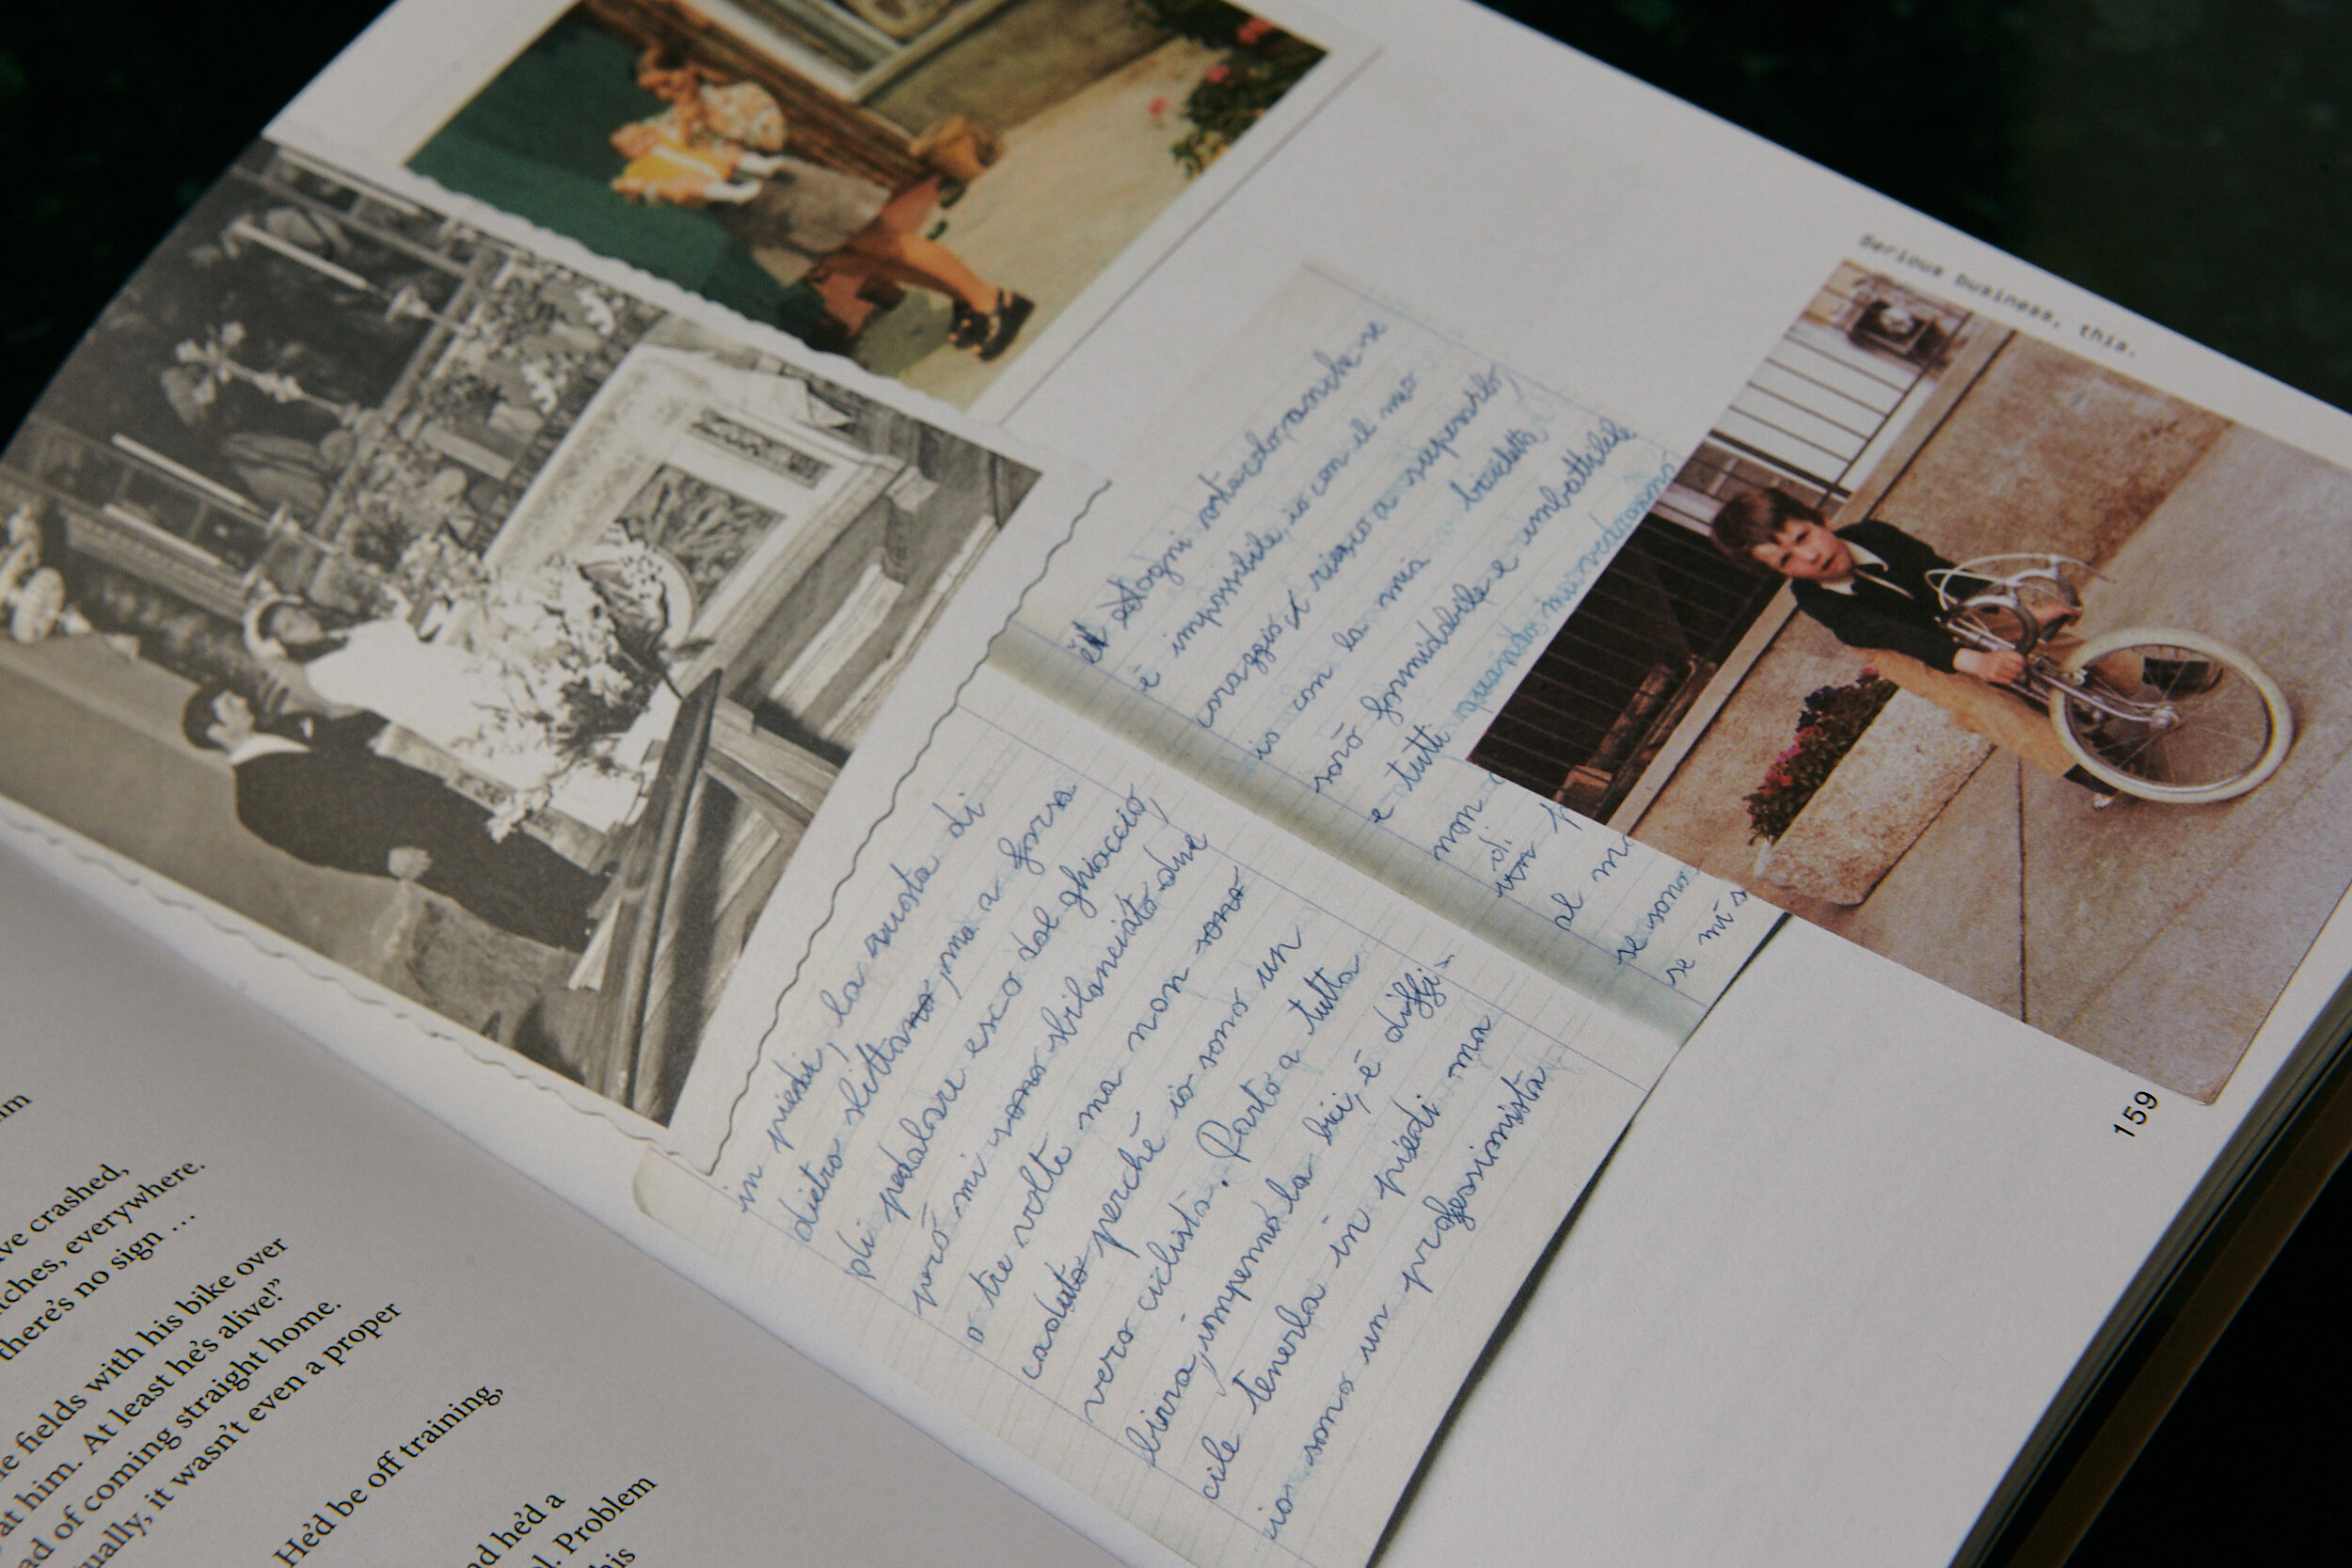 Serious business, this.
ogni ostacolo, anche se
è impossibile, io con il mio
coraggio riesco a superarlo,
io con la mia bicicletta
sarò formidabile e imbattibile
e tutti quando mi vedranno
non
di
al
se sono
se mi s
in piedi, la ruota di
dietro slittano, ma a forza
pedalare esco dal ghiaccio,
però mi sono sbilanciato due
o tre volte ma non sono
caduto perchè io sono un
vero ciclista. Parto a tutta
birra, impenno la bici, è diffi=
cile tenerla in piedi ma
io sono un professionista
159
ve crashed,
tches, everywhere.
there's no sign …
e fields with his bike over
at him. At least he's alive!”
ad of coming straight home.
ually, it wasn't even a proper
He'd be off training,
nd he'd a
l. Problem
his